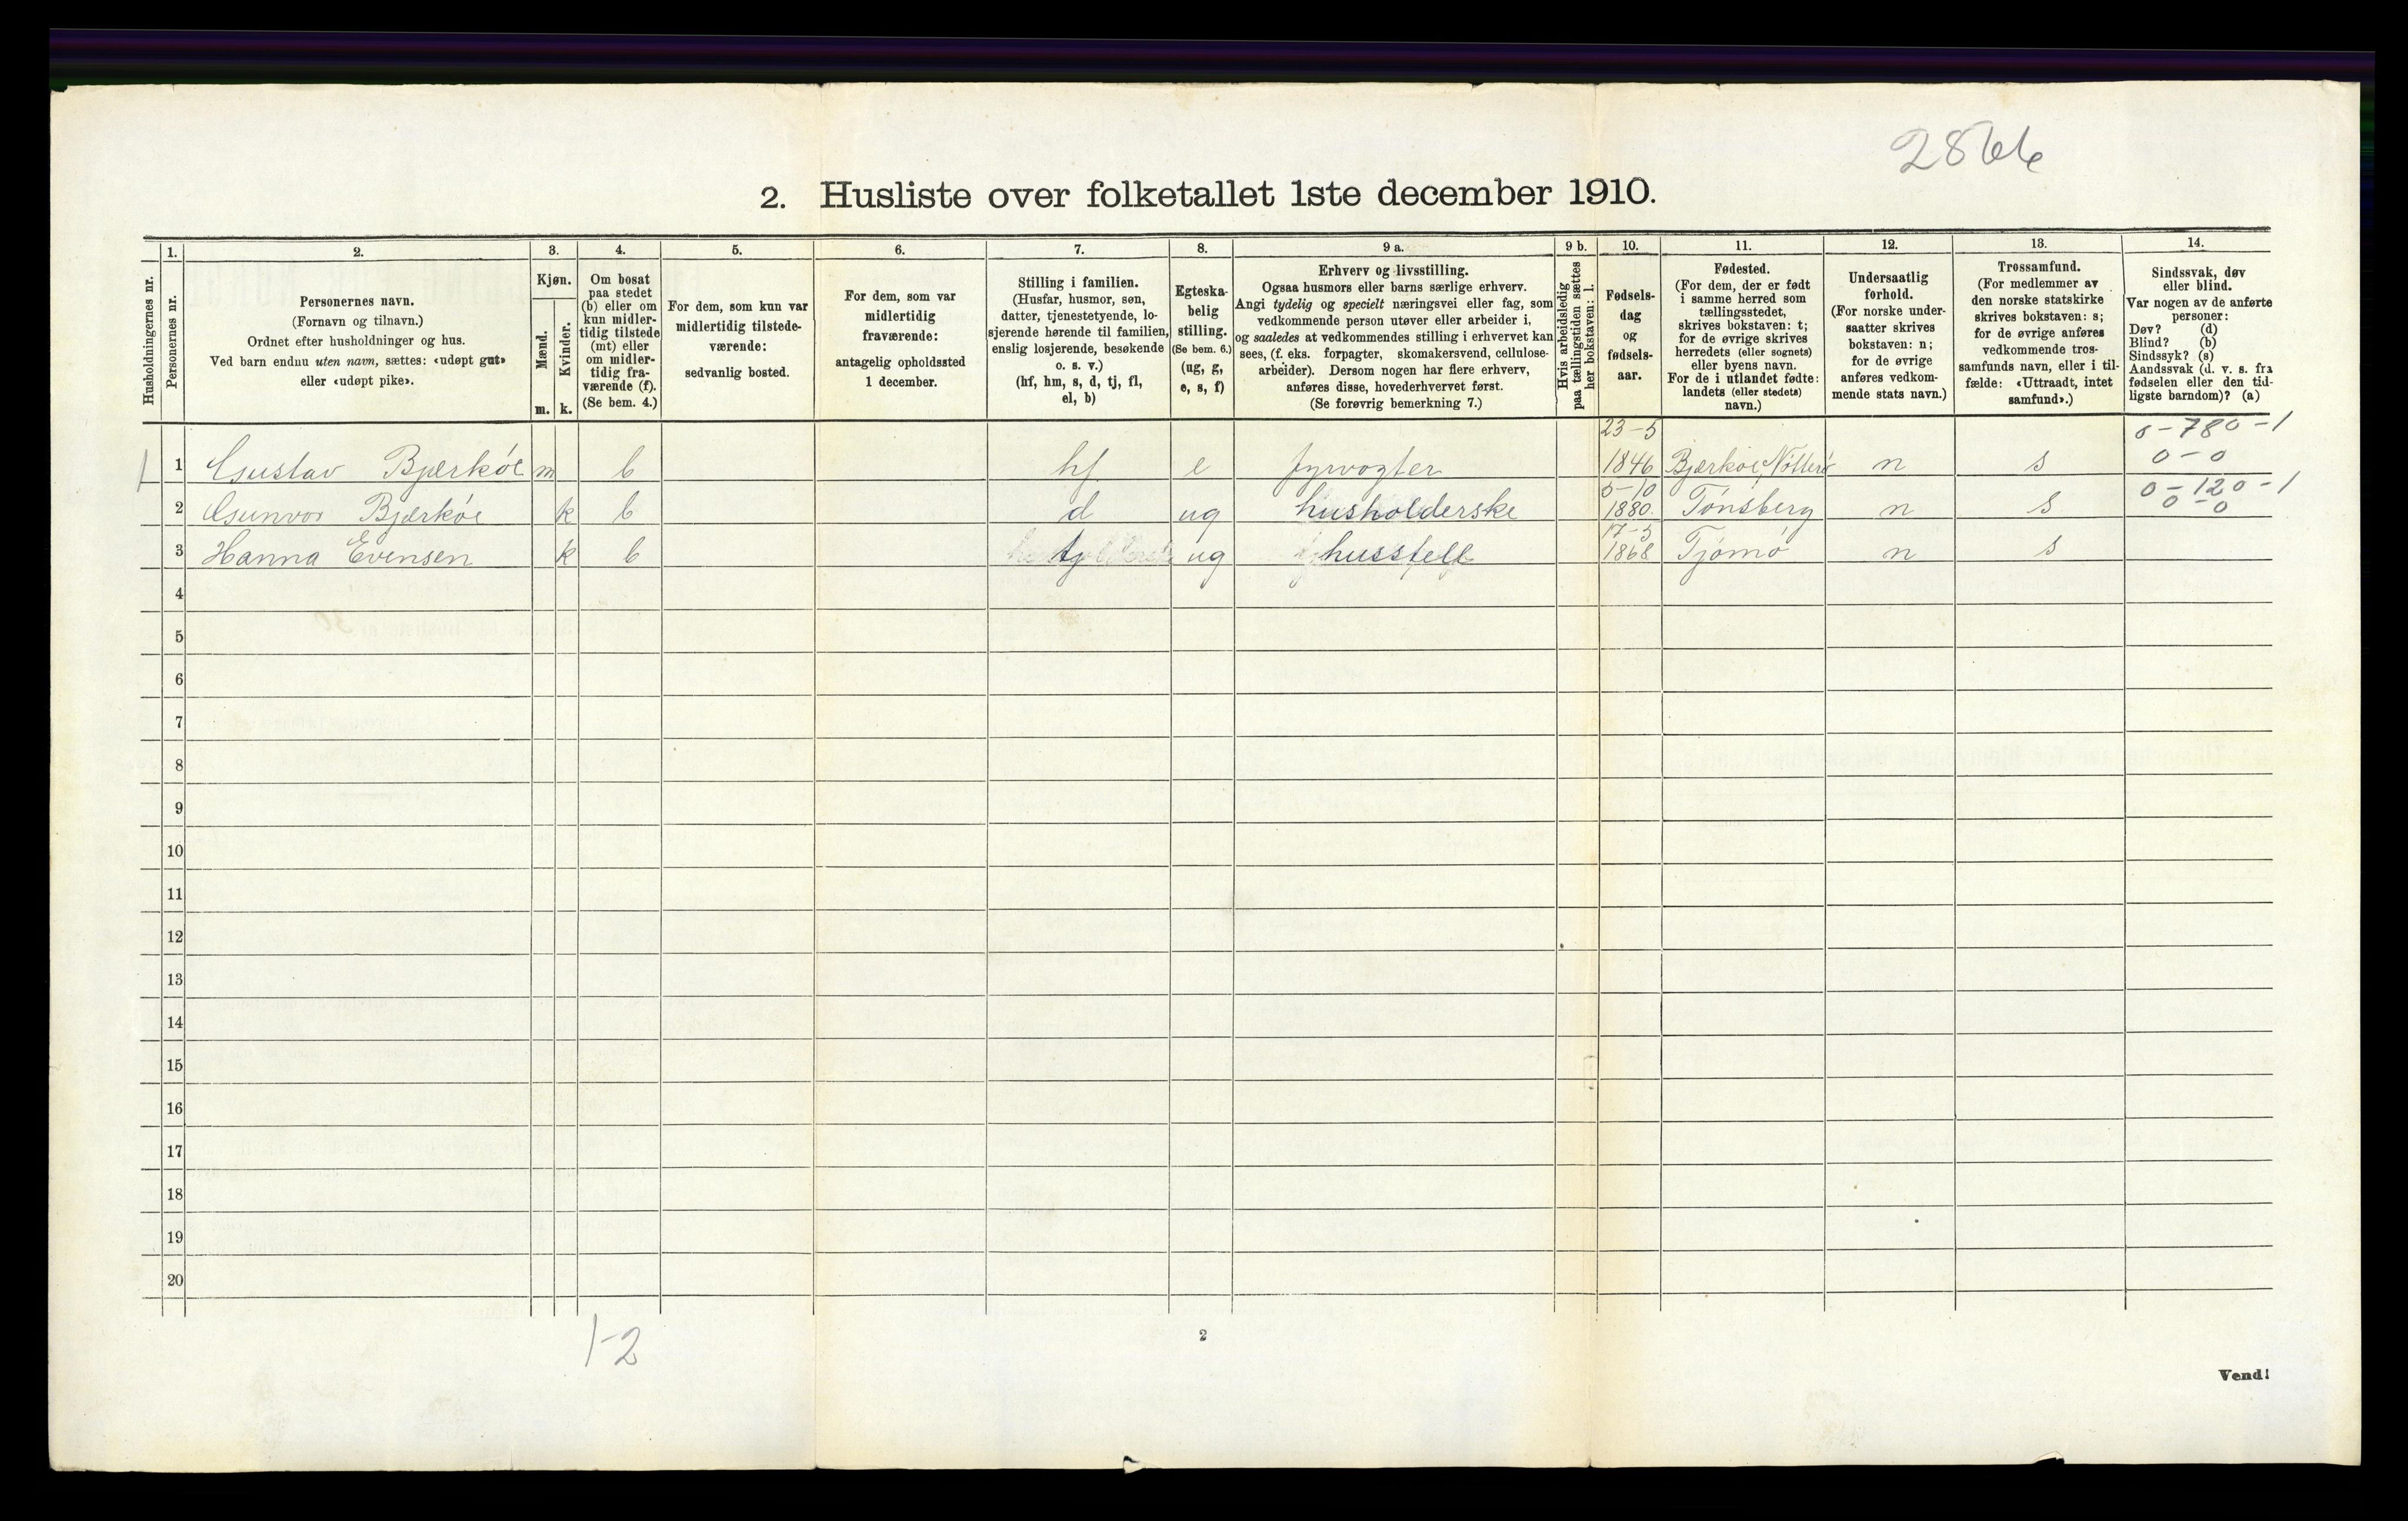 2866
2. Husliste over folketallet 1ste december 1910.
Husholdningernes nr.
1. Personernes nr.
2. Personernes navn.
(Fornavn og tilnavn.)
Ordnet efter husholdninger og hus.
Ved barn endnu uten navn, sættes: «udøpt gut»
eller «udøpt pike».
3. Kjøn.
Mænd. m.
Kvinder. k.
4. Om bosat
paa stedet
(b) eller om
kun midler-
tidig tilstede
(mt) eller
om midler-
tidig fra-
værende (f).
(Se bem. 4.)
5. For dem, som kun var
midlertidig tilstede-
værende:
sedvanlig bosted.
6. For dem, som var
midlertidig
fraværende:
antagelig opholdssted
1 december.
7. Stilling i familien.
(Husfar, husmor, søn,
datter, tjenestetyende, lo-
sjerende hørende til familien,
enslig losjerende, besøkende
o. s. v.)
(hf, hm, s, d, tj, fl,
el, b)
8. Egteska-
belig
stilling.
(Se bem. 6.)
(ug, g,
e, s, f)
9 a. Erhverv og livsstilling.
Ogsaa husmors eller barns særlige erhverv.
Angi tydelig og specielt næringsvei eller fag, som
vedkommende person utøver eller arbeider i,
og saaledes at vedkommendes stilling i erhvervet kan
sees, (f. eks. forpagter, skomakersvend, cellulose-
arbeider). Dersom nogen har flere erhverv,
anføres disse, hovederhvervet først.
(Se forøvrig bemerkning 7.)
9 b. Hvis arbeidsledig
paa tællingstiden sættes
her bokstaven: l.
10. Fødsels-
dag
og
fødsels-
aar.
11. Fødested.
(For dem, der er født
i samme herred som
tællingsstedet,
skrives bokstaven: t;
for de øvrige skrives
herredets (eller sognets)
eller byens navn.
For de i utlandet fødte:
landets (eller stedets)
navn.)
12. Undersaatlig
forhold.
(For norske under-
saatter skrives
bokstaven: n;
for de øvrige
anføres vedkom-
mende stats navn.)
13. Trossamfund.
(For medlemmer av
den norske statskirke
skrives bokstaven: s;
for de øvrige anføres
vedkommende tros-
samfunds navn, eller i til-
fælde: «Uttraadt, intet
samfund».)
14. Sindssvak, døv
eller blind.
Var nogen av de anførte
personer:
Døv? (d)
Blind? (b)
Sindssyk? (s)
Aandssvak (d. v. s. fra
fødselen eller den tid-
ligste barndom)? (a)
23-5 0-780-1
1 1 Gustav Bjærkøe m b hf e fyrvogter 1846 Bjærkøe, Nøtterø n s 0-0
5-10 0-120-1
2 Gunvor Bjærkøe k b d ug husholderske 1880 Tønsberg n s 0-0
17-5
3 Hanna Evensen k b tj ug husstell 1868 Tjømø n s
4
5
6
7
8
9
10
11
12
13
14
15
16
17
18
19
20
1-2
2
Vend!